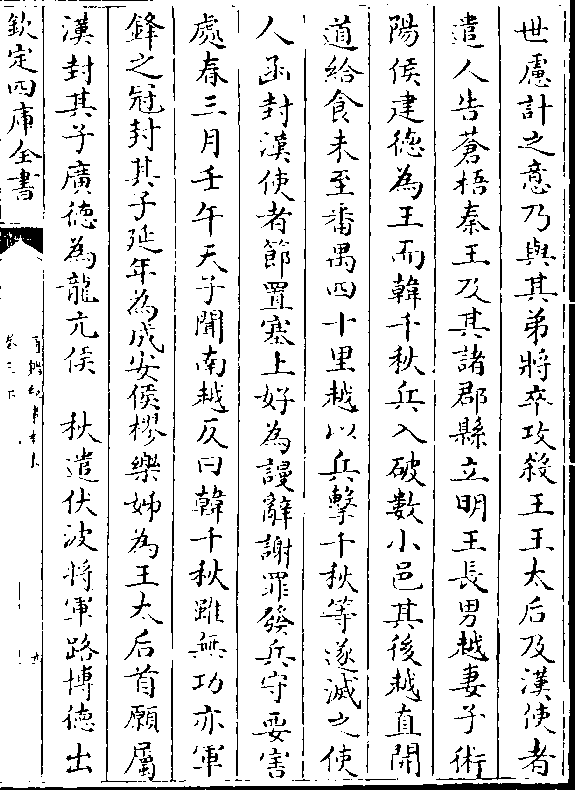 世慮計之意乃與其弟將卒攻殺王王太后及漢使者
遣人告蒼梧秦王及其諸郡縣立明王長男越妻子術
陽侯建徳為王而韓千秋兵入破數小邑其後越直開
道給食未至番禺四十里越以兵擊千秋等遂滅之使
人函封漢使者節置塞上好為謾辭謝罪發兵守要害
處春三月壬午天子聞南越反曰韓千秋雖無功亦軍
鋒之冠封其子延年為成安侯樛樂姊為王太后首願屬
漢封其子廣徳為龍亢侯　秋遣伏波將軍路博徳出
欽定四庫全書
卷三下